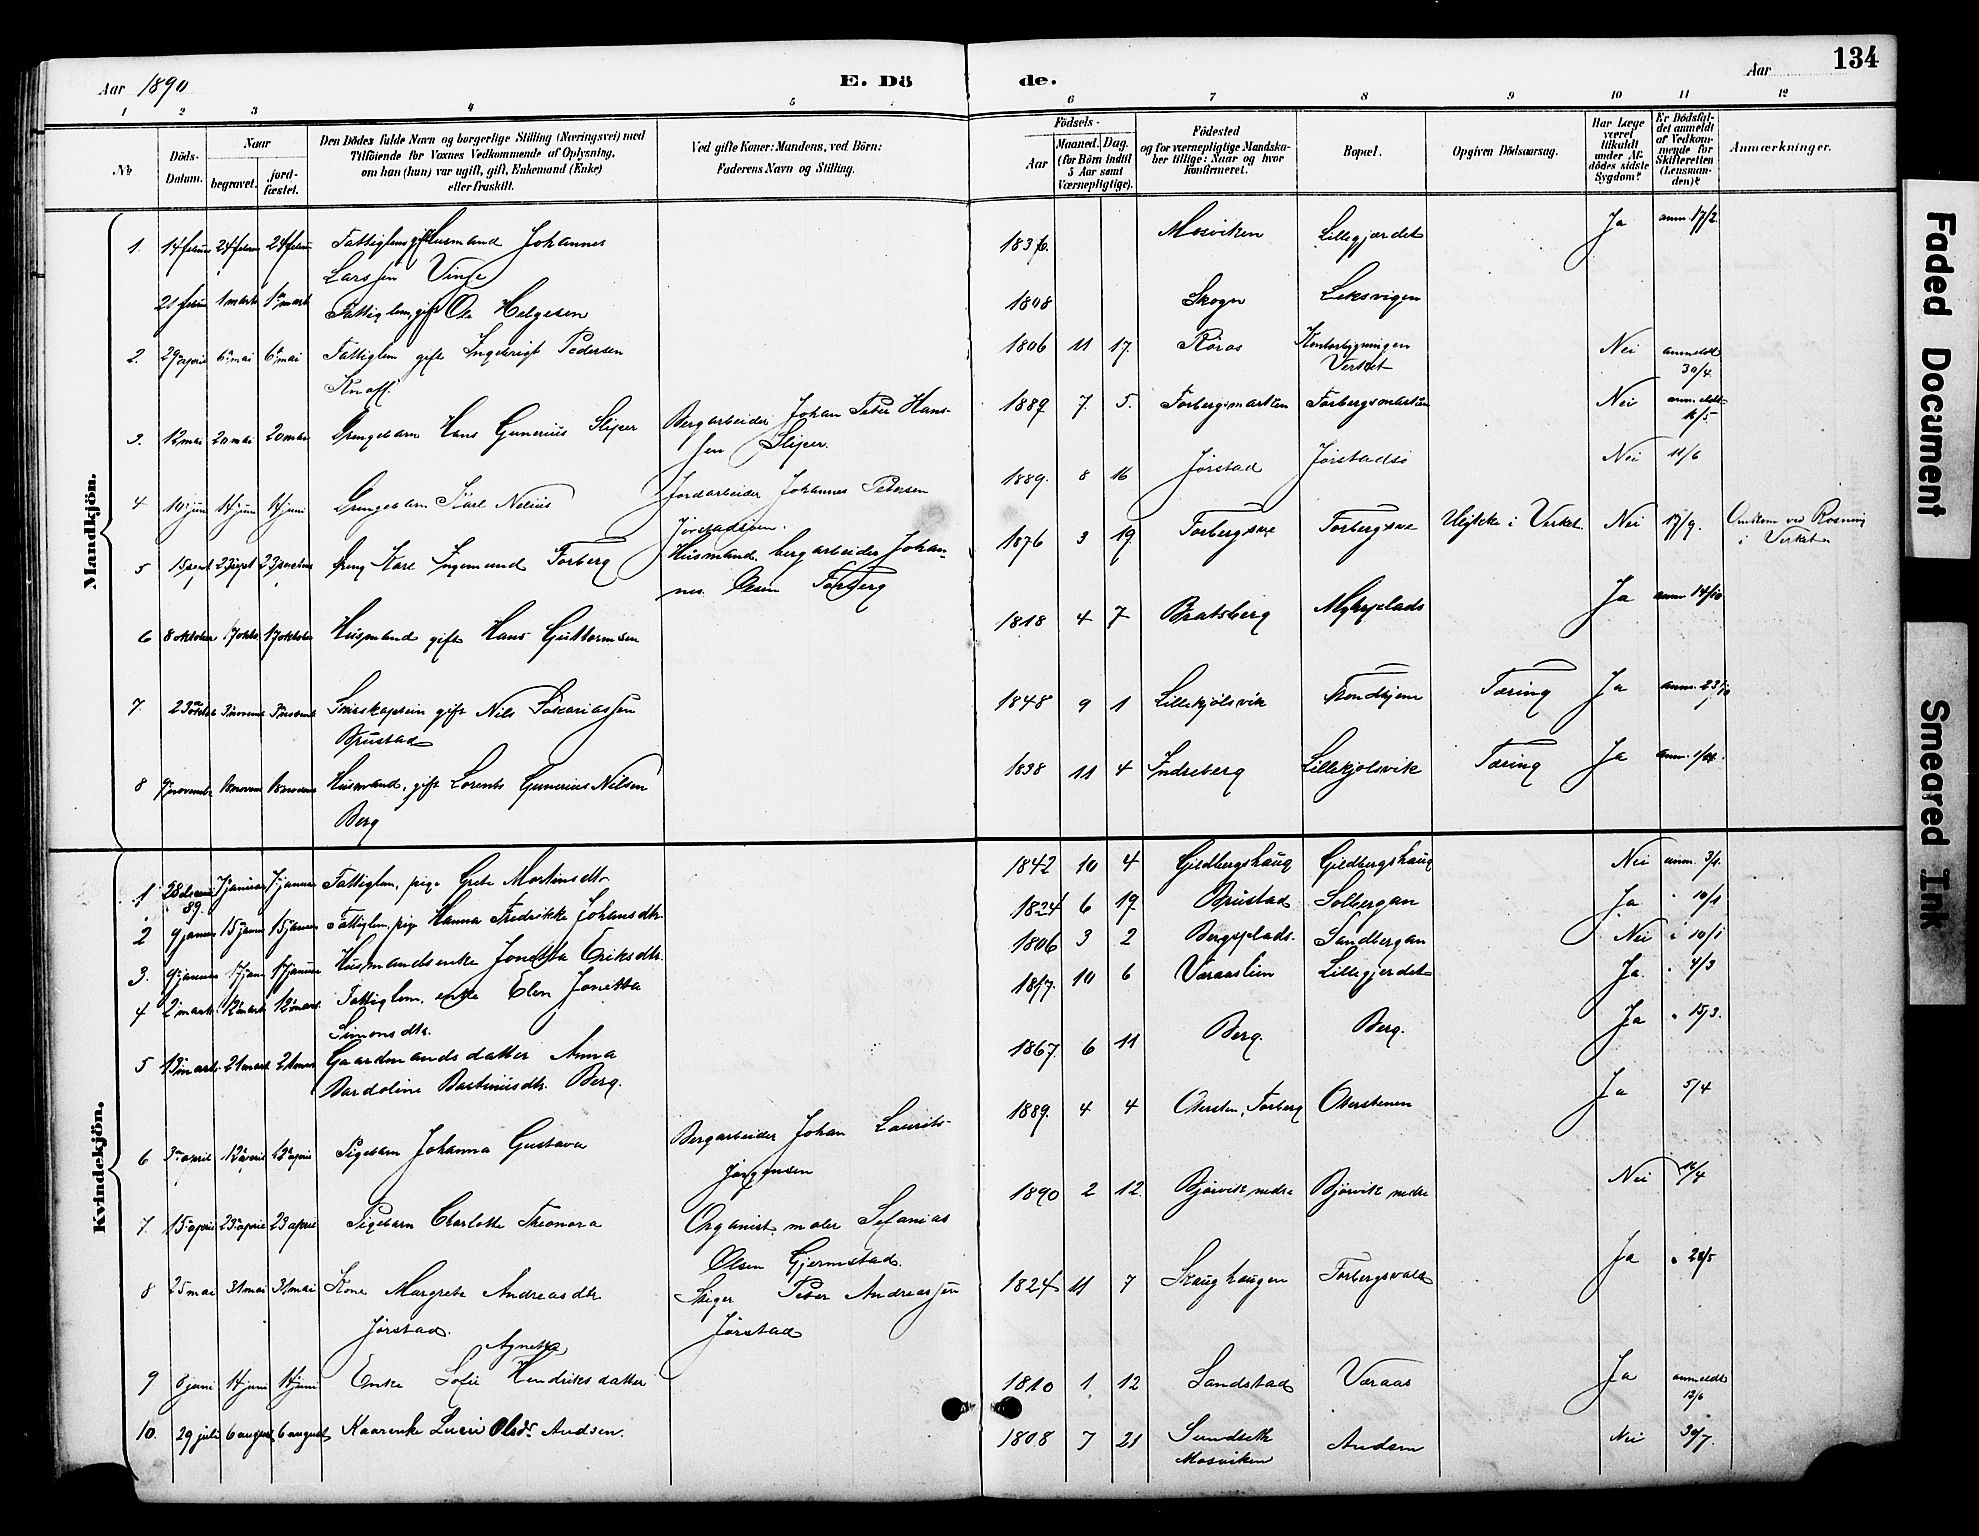 134
Aar 1890
E. Dö de.
Aar
1 2 3 4 5 6 7 8 9 10 11 12
No
Döds-Datum.
Naar
begravet.
jord-fæstet.
Den Dödes fulde Navn og borgerlige Stilling (Næringsvei) med
Tilföiende for Voxnes Vedkommende af Oplysning,
om han (hun) var ugift, gift, Enkemand (Enke)
eller fraskilt.
Ved gifte Koner: Mandens, ved Börn:
Faderens Navn og Stilling.
Födsels-
Aar
Maaned. Dag.
(for Börn indtil
5 Aar samt
Værnepligtige).
Födested
og for værnepligtige Mandska-
ber tillige: Naar og hvor
konfirmeret.
Bopæl.
Opgiven Dödsaarsag.
Har Læge
været
tilkaldt
under Af-
dödes sidste
Sygdom?
Er Dödsfal-
det anmeldt
af Vedkom-
mende for
Skifteretten
(Lensman-
den)?
Anmærkninger.
Mandkjön.
1. 14 februar 24 februar 24 februar Fattiglem gift Husmand Johannes 1836 Mosviken Lillegjærdet Ja anm. 17/2
Larssen Vinje
21 februar 1 marts 1 marts Fattiglem, gift Ole Helgesen 1808 Skogn Leksvigen
2. 29 april 6 mai 6 mai Fattiglem gift Ingebrigt Pedersen 1806 11 17. Röros Kontorbygningen Nei anmeldt
Knoff. Verket 30/4.
3. 12 mai 20 mai 20 mai Drengebarn Hans Gunerius Sliper Bergarbeider Johan Peter Hans- 1889 7. 5. Forbergsmarken Forbergsmarken Nei anmeldt
sen Sliper. 16/5.
4 10 juni 14 juni 14 juni Drengebarn Karl Nelius Jordarbeider Johannes Petersen 1889. 8 16 Jörstad Jörstadsö Nei 11/6
Jörstadsöen.
5 15 sept 23 sept 23 september Dreng Karl Ingemund Forberg Husmand, bergarbeider Johan- 1876 3 19 Forbergsve Forbergsve Ulykke i Verket. Nei 17/9. Omkom ved Rasning
nes Olsen Forberg i Verket
6 8 oktober 17 oktbr 17 oktober Husmand gift Hans Guttormsen 1818 4 7 Bratsberg Myhrplads Ja anm 14/10
7. 23 oktbr 3 novemb 3 novemb Skibskaptein gift Nils Sakariassen 1848 9 1 Lillekjölsvik Trondhjem Tæring Ja anm. 23/10
Brustad
8 9 november 18 novem 18 novem Husmand, gift Lorents Gunerius Nilsen 1838 11 4 Indreberg Lillekjolsvik Tæring Ja anm.
Berg
Kvindekjön.
1 28 decemb 89 7 januar 7 januar Fattiglem, pige Grete Mortinsdtr 1842 10 4 Gjeldbergshaug Gjeldbergshaug Nei anm. 3/1.
2 9 januar 15 januar 15 januar Fattiglem, pige Hanna Fredrikke Johansdtr. 1824 6 19 Brustad Solbergan Ja " 10/1
3. 9 januar 17 janu 17 januar Husmandsenke Jonetta Eriksdtr. 1806 3 2 Bergsplads. Sandbergan Nei " 10/1
4 2 marts 12 marts 12 marts Fattiglem, enke Elen Jonetta 10 6 Væraaslien Lillegjerdet Ja. " 4/3
Simonsdtr.
5 13 marts 21 marts 21 mars Gaardmandsdatter Anna 1867. 6 11 Berg. Berg. Ja " 15/3.
Bardoline Bastiniusdtr. Berg.
6 3 april 13 april 13 april Pigebarn Johanna Gustava Bergarbeider Johan Laurits- 1889. 4 4 Otersten, Forberg Oterstenen Ja 5/4
Jörgensen
7. 15 april 23 april 23 april Pigebarn Charlotte Theonora Organist, maler Sefanias 1890 2 12. Björvik nedre Björvik nedre Nei 16/4
Olsen Gjermstad.
8 25 mai 31 mai 31 mai Kone Margrete Andreasdtr Stiger Peter Andreassen 1824 11 7 Skaughaugen Forbergsvald Ja " 28/5
Jörstad. Jörstad
Agneta
9 8 juni 14 juni 14 juni Enke Sofie Hendriksdatter 1810 1 12 Sandstad Væraas Ja anmeldt
13/6
10. 29 juli 6 august 6 august Kaarenke Lucie Olsdr. Andsen. 1808 7 21 Sundseth Andsen Nei 30/7.
Mosviken
Faded Document
Smeared Ink